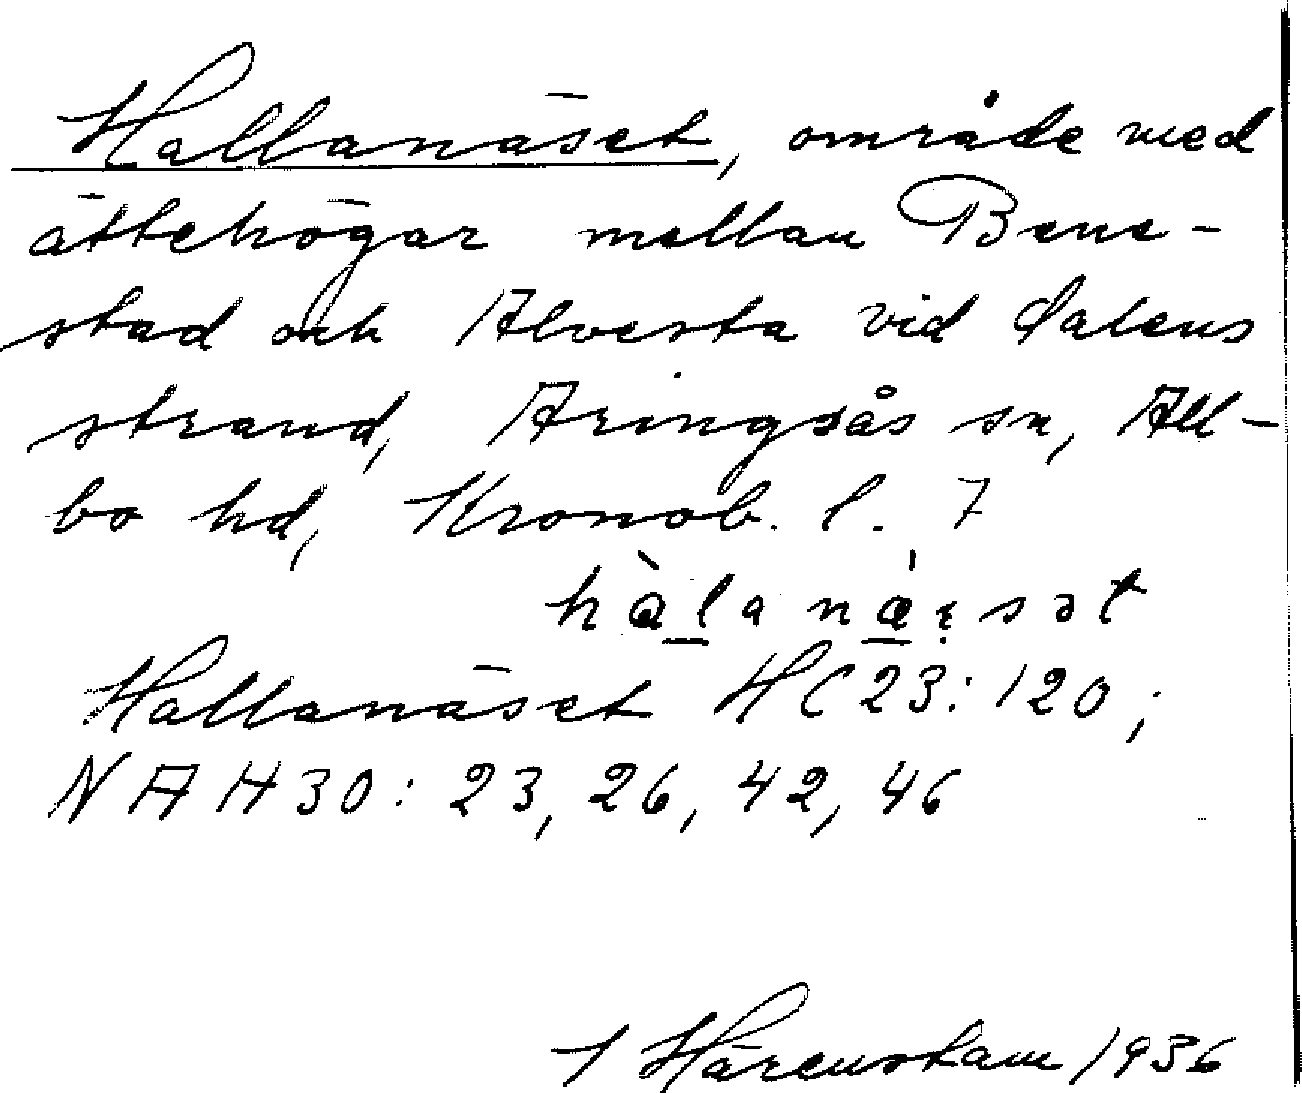 Hallanäset, område med
ättehögar mellan Bene-
stad och Alvesta vid Salens
strand, Aringsås sn, All-
bo hd, Kronob. l. 7
hàlanä́sət
Hallanäset HC 23:120;
NAH 30: 23, 26, 42, 46
Härenstam 1936